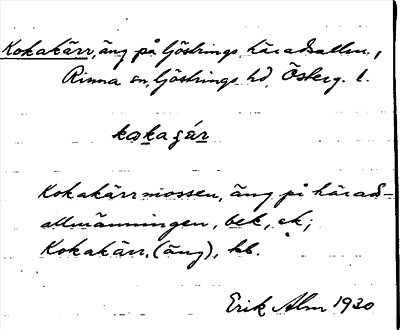 Kokakärr, äng på Göstrings häradsallm.,
Rinna sn, Göstrings hd, Österg. l.
Kokakärrmossen, äng på härads-
allmänningen, bek, ek;
Kokakärr, (äng), hb.
Erik Alm 1930